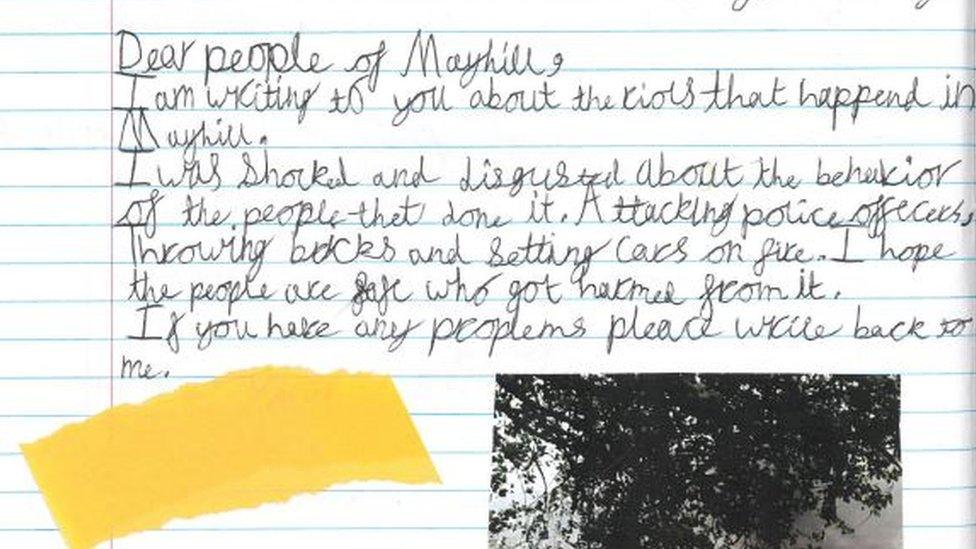 Dear people of Mayhill,
I am writing to you about the riots that happend in
Mayhill.
I was Shocked and disgusted about the behavior
of the people that done it. Attacking police offecers,
Throwing bricks and setting cars on fire. I hope
the people are safe who got harmed from it.
If you have any proplems pleace write back to
me.